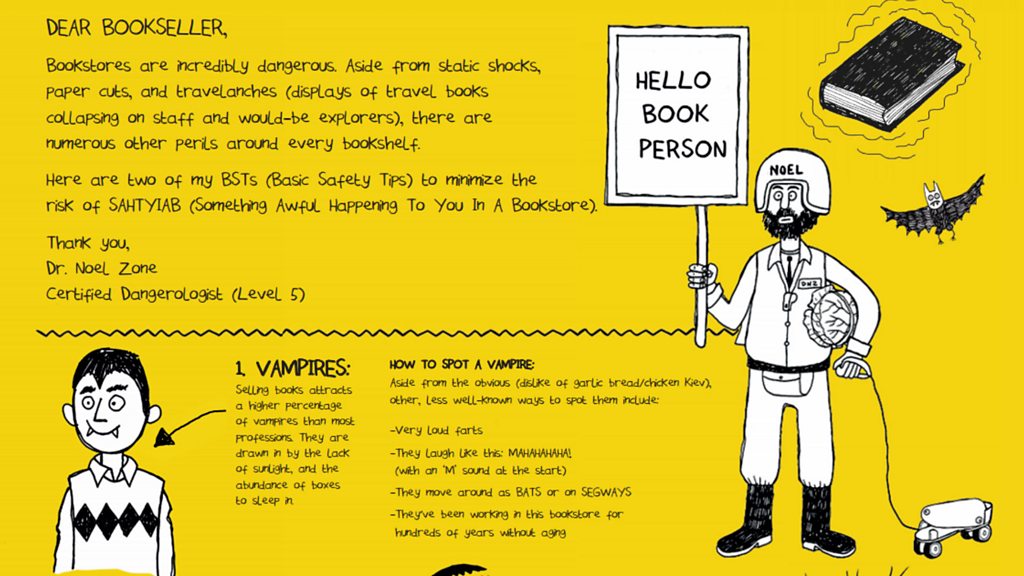 DEAR BOOKSELLER,
Bookstores are incredibly dangerous. Aside from static shocks,
paper cuts, and travelanches (displays of travel books
collapsing on staff and would-be explorers), there are
numerous other perils around every bookshelf.
Here are two of my BSTs (Basic Safety Tips) to minimize the
risk of SAHTYIAB (Something Awful Happening To You In A Bookstore).
Thank you,
Dr. Noel Zone
Certified Dangerologist (Level 5)
HELLO
BOOK
PERSON
NOEL
DNZ
1. VAMPIRES:
Selling books attracts
a higher percentage
of vampires than most
professions. They are
drawn in by the lack
of sunlight, and the
abundance of boxes
to sleep in.
HOW TO SPOT A VAMPIRE:
Aside from the obvious (dislike of garlic bread/chicken Kiev),
other, less well-known ways to spot them include:
-Very loud farts
-They laugh like this: MAHAHAHAHA!
(with an 'M' sound at the start)
-They move around as BATS or on SEGWAYS
-They've been working in this bookstore for
hundreds of years without aging